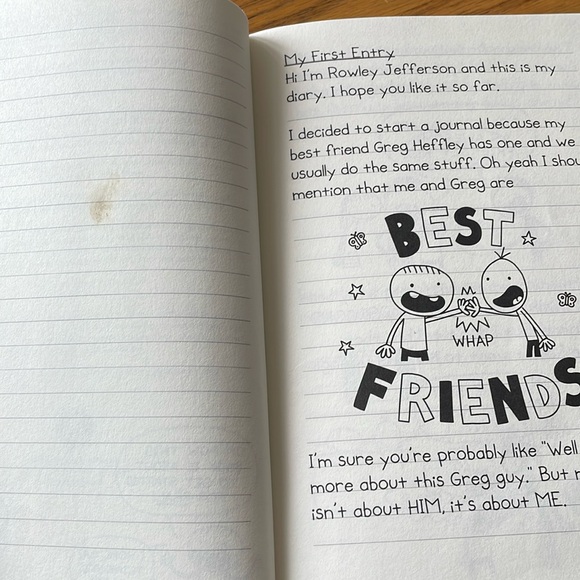 My First Entry
Hi I'm Rowley Jefferson and this is my
diary. I hope you like it so far.
I decided to start a journal because my
best friend Greg Heffley has one and we
usually do the same stuff. Oh yeah I shou
mention that me and Greg are
BEST
WHAP
FRIENDS
I'm sure you're probably like "Well
more about this Greg guy." But
isn't about HIM, it's about ME.